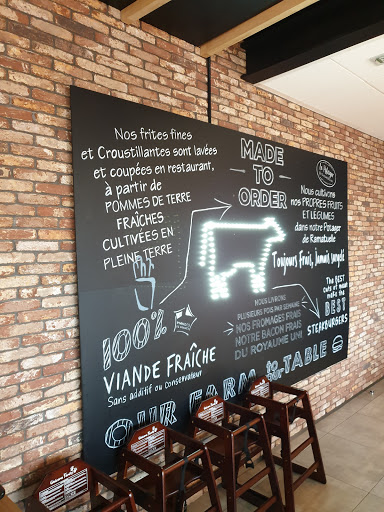 Nos frites fines
et Croustillantes sont lavées
et coupées en restaurant,
à partir de
POMMES DE TERRE
FRAÎCHES
CULTIVÉES EN
PLEINE TERRE
MADE
TO
ORDER
Nous cultivons
nos PROPRES FRUITS
ET LÉGUMES
dans notre Potager
de Ramatuelle
Toujours frais, jamais congelé
100%
VIANDE FRAÎCHE
Sans additif ou conservateur
NOUS LIVRONS
PLUSIEURS FOIS PAR SEMAINE
NOS FROMAGES FRAIS
NOTRE BACON FRAIS
DU ROYAUME UNI
The BEST
cuts of meat
make the
BEST
STEAKBURGERS
OUR FARM TO TABLE